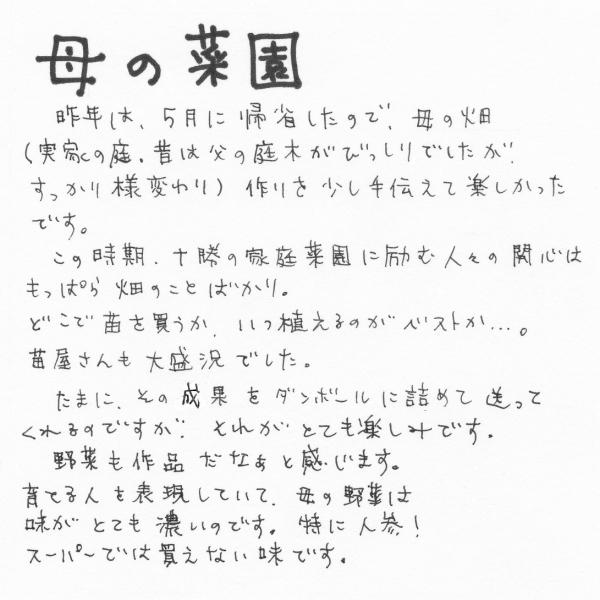 母の菜園
昨年は、5月に帰省したので、母の畑
(実家の庭.昔は父の庭木がびっしりでしたが、
すっかり様変わり)作りを少し手伝えて楽しかった
です。
この時期、十勝の家庭菜園に励む人々の関心は
もっぱら畑のことばかり。
どこで苗を買うか、いつ植えるのがベストか…。
苗屋さんも大盛況でした。
たまに、その成果をダンボールに詰めて送って
くれるのですが、それがとても楽しみです。
野菜も作品だなぁと感じます。
育てる人を表現していて、母の野菜は
味がとても濃いのです。特に人参!
スーパーでは買えない味です。